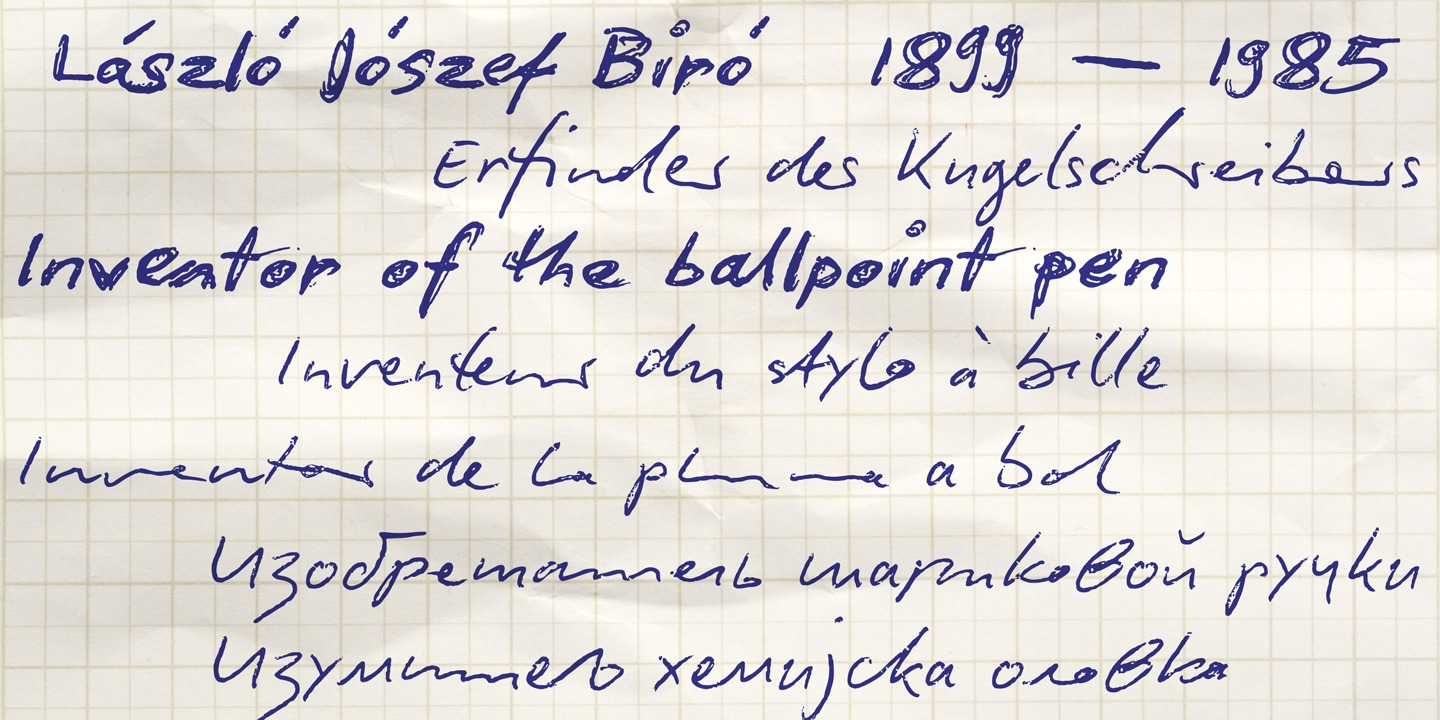 László Jószef Bíró 1899 — 1985
Erfinder des Kugelschreibers
Inventor of the ballpoint pen
Inventeur du stylo à bille
Inventor de la pluma a bol
Изобретатель шариковой ручки
Изумитељ хемијска оловка